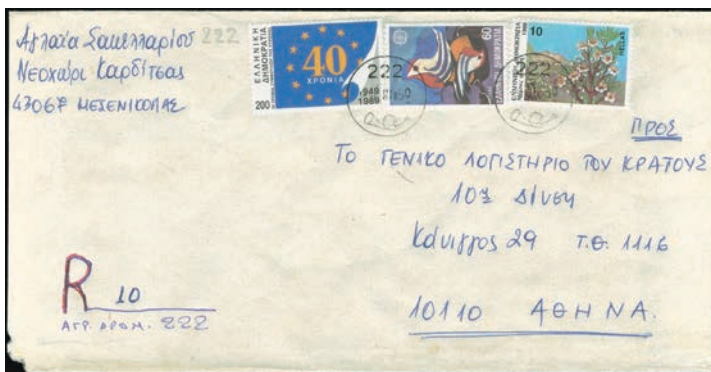 Αγλαΐα Σακελλαρίου 222
Νεοχώρι Καρδίτσας
43067 ΜΕΣΕΝΙΚΟΛΑΣ
ΕΛΛΗΝΙΚΗ ΔΗΜΟΚΡΑΤΙΑ
40
ΧΡΟΝΙΑ
200
1949
1989
222
60
ΕΛΛΗΝΙΚΗ ΔΗΜΟΚΡΑΤΙΑ
10
HELLAS
222
ΠΡΟΣ
ΤΟ ΓΕΝΙΚΟ ΛΟΓΙΣΤΗΡΙΟ ΤΟΥ ΚΡΑΤΟΥΣ
10η Δ/νση
Κάνιγγος 29 Τ.Θ. 1116
10110 ΑΘΗΝΑ.
R 10
ΑΓΡ. ΔΡΟΜ. 222